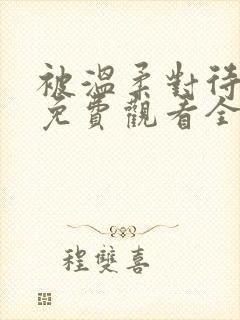 被溫柔對待
免費觀看全
程雙喜